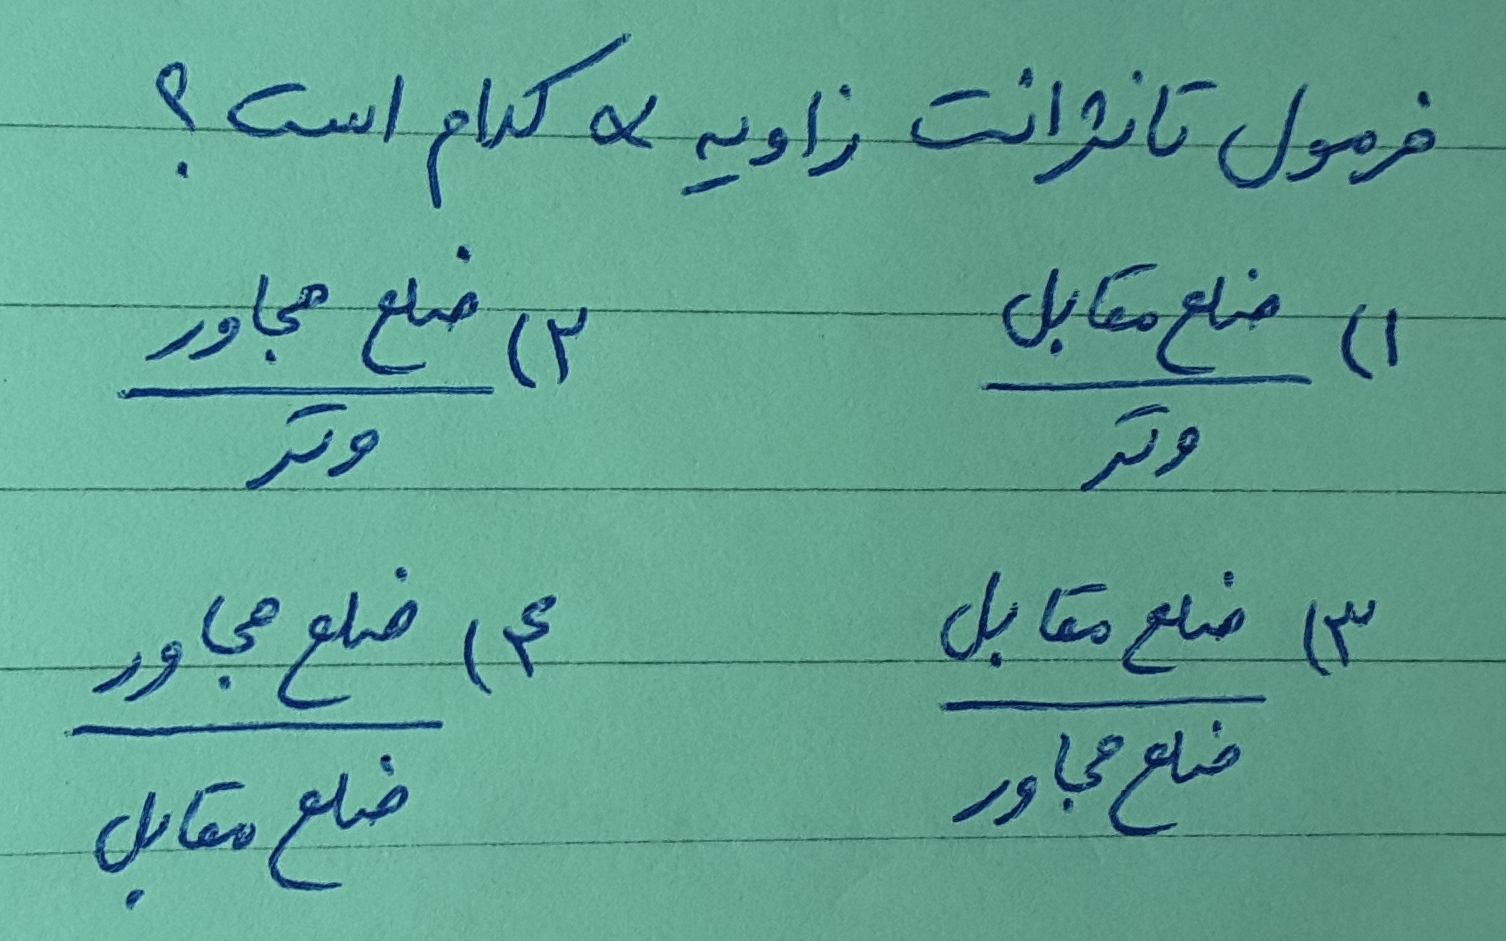 فرمول تانژانت زاویه α کدام است؟
۱) ضلع مقابل / وتر ۲) ضلع مجاور / وتر
۳) ضلع مقابل / ضلع مجاور ۴) ضلع مجاور / ضلع مقابل